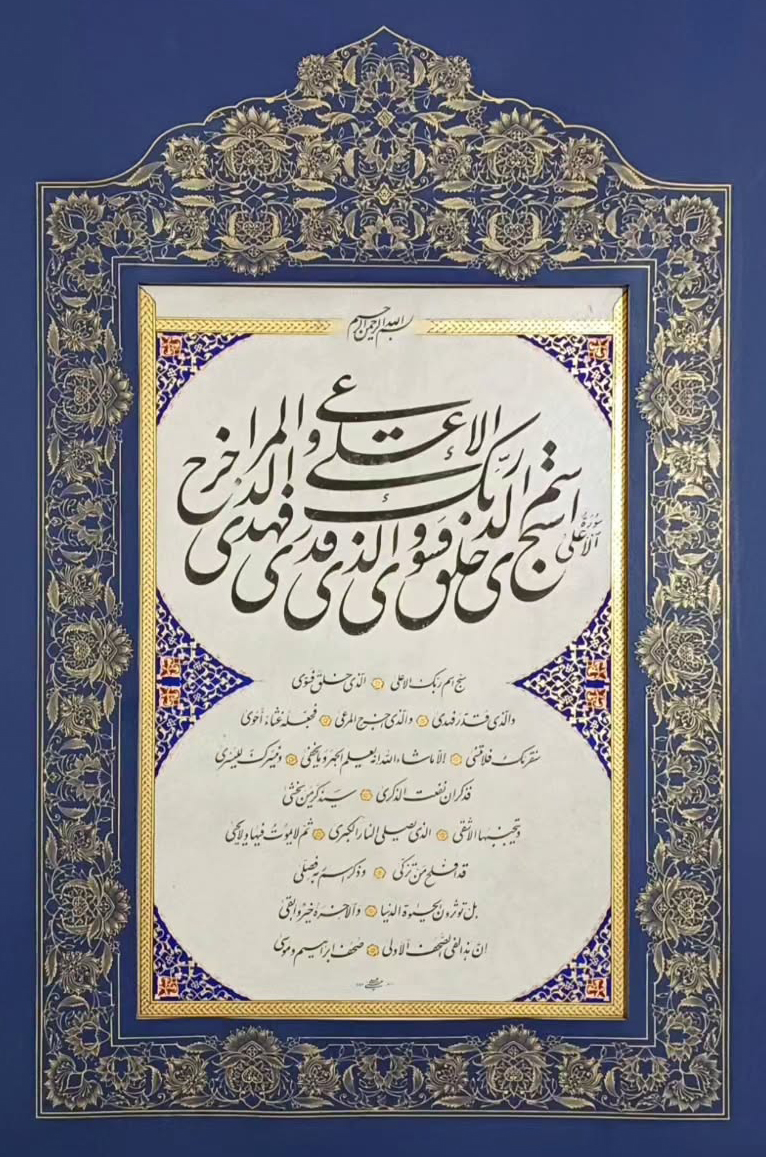 بسم الله الرحمن الرحیم
سورة الأعلى
سبح اسم ربك الاعلى الذی خلق فسوى والذی قدر فهدى والذی اخرج المرعى
سبح اسم ربك الاعلى الذی خلق فسوى
والذی قدر فهدى والذی اخرج المرعى فجعله غثاء أحوى
سنقرئك فلا تنسى الا ما شاء الله انه يعلم الجهر وما يخفى ونيسرك لليسرى
فذكر ان نفعت الذكرى سيذكر من يخشى
ويتجنبها الاشقى الذی يصلى النار الكبرى ثم لا يموت فيها ولا يحيى
قد افلح من تزكى وذكر اسم ربه فصلى
بل تؤثرون الحيوة الدنيا والاخرة خير وابقى
ان هذا لفى الصحف الاولى صحف ابراهيم وموسى